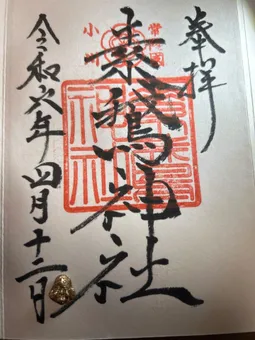 奉拝
常陸國
小川
素鵞神社
令和六年四月